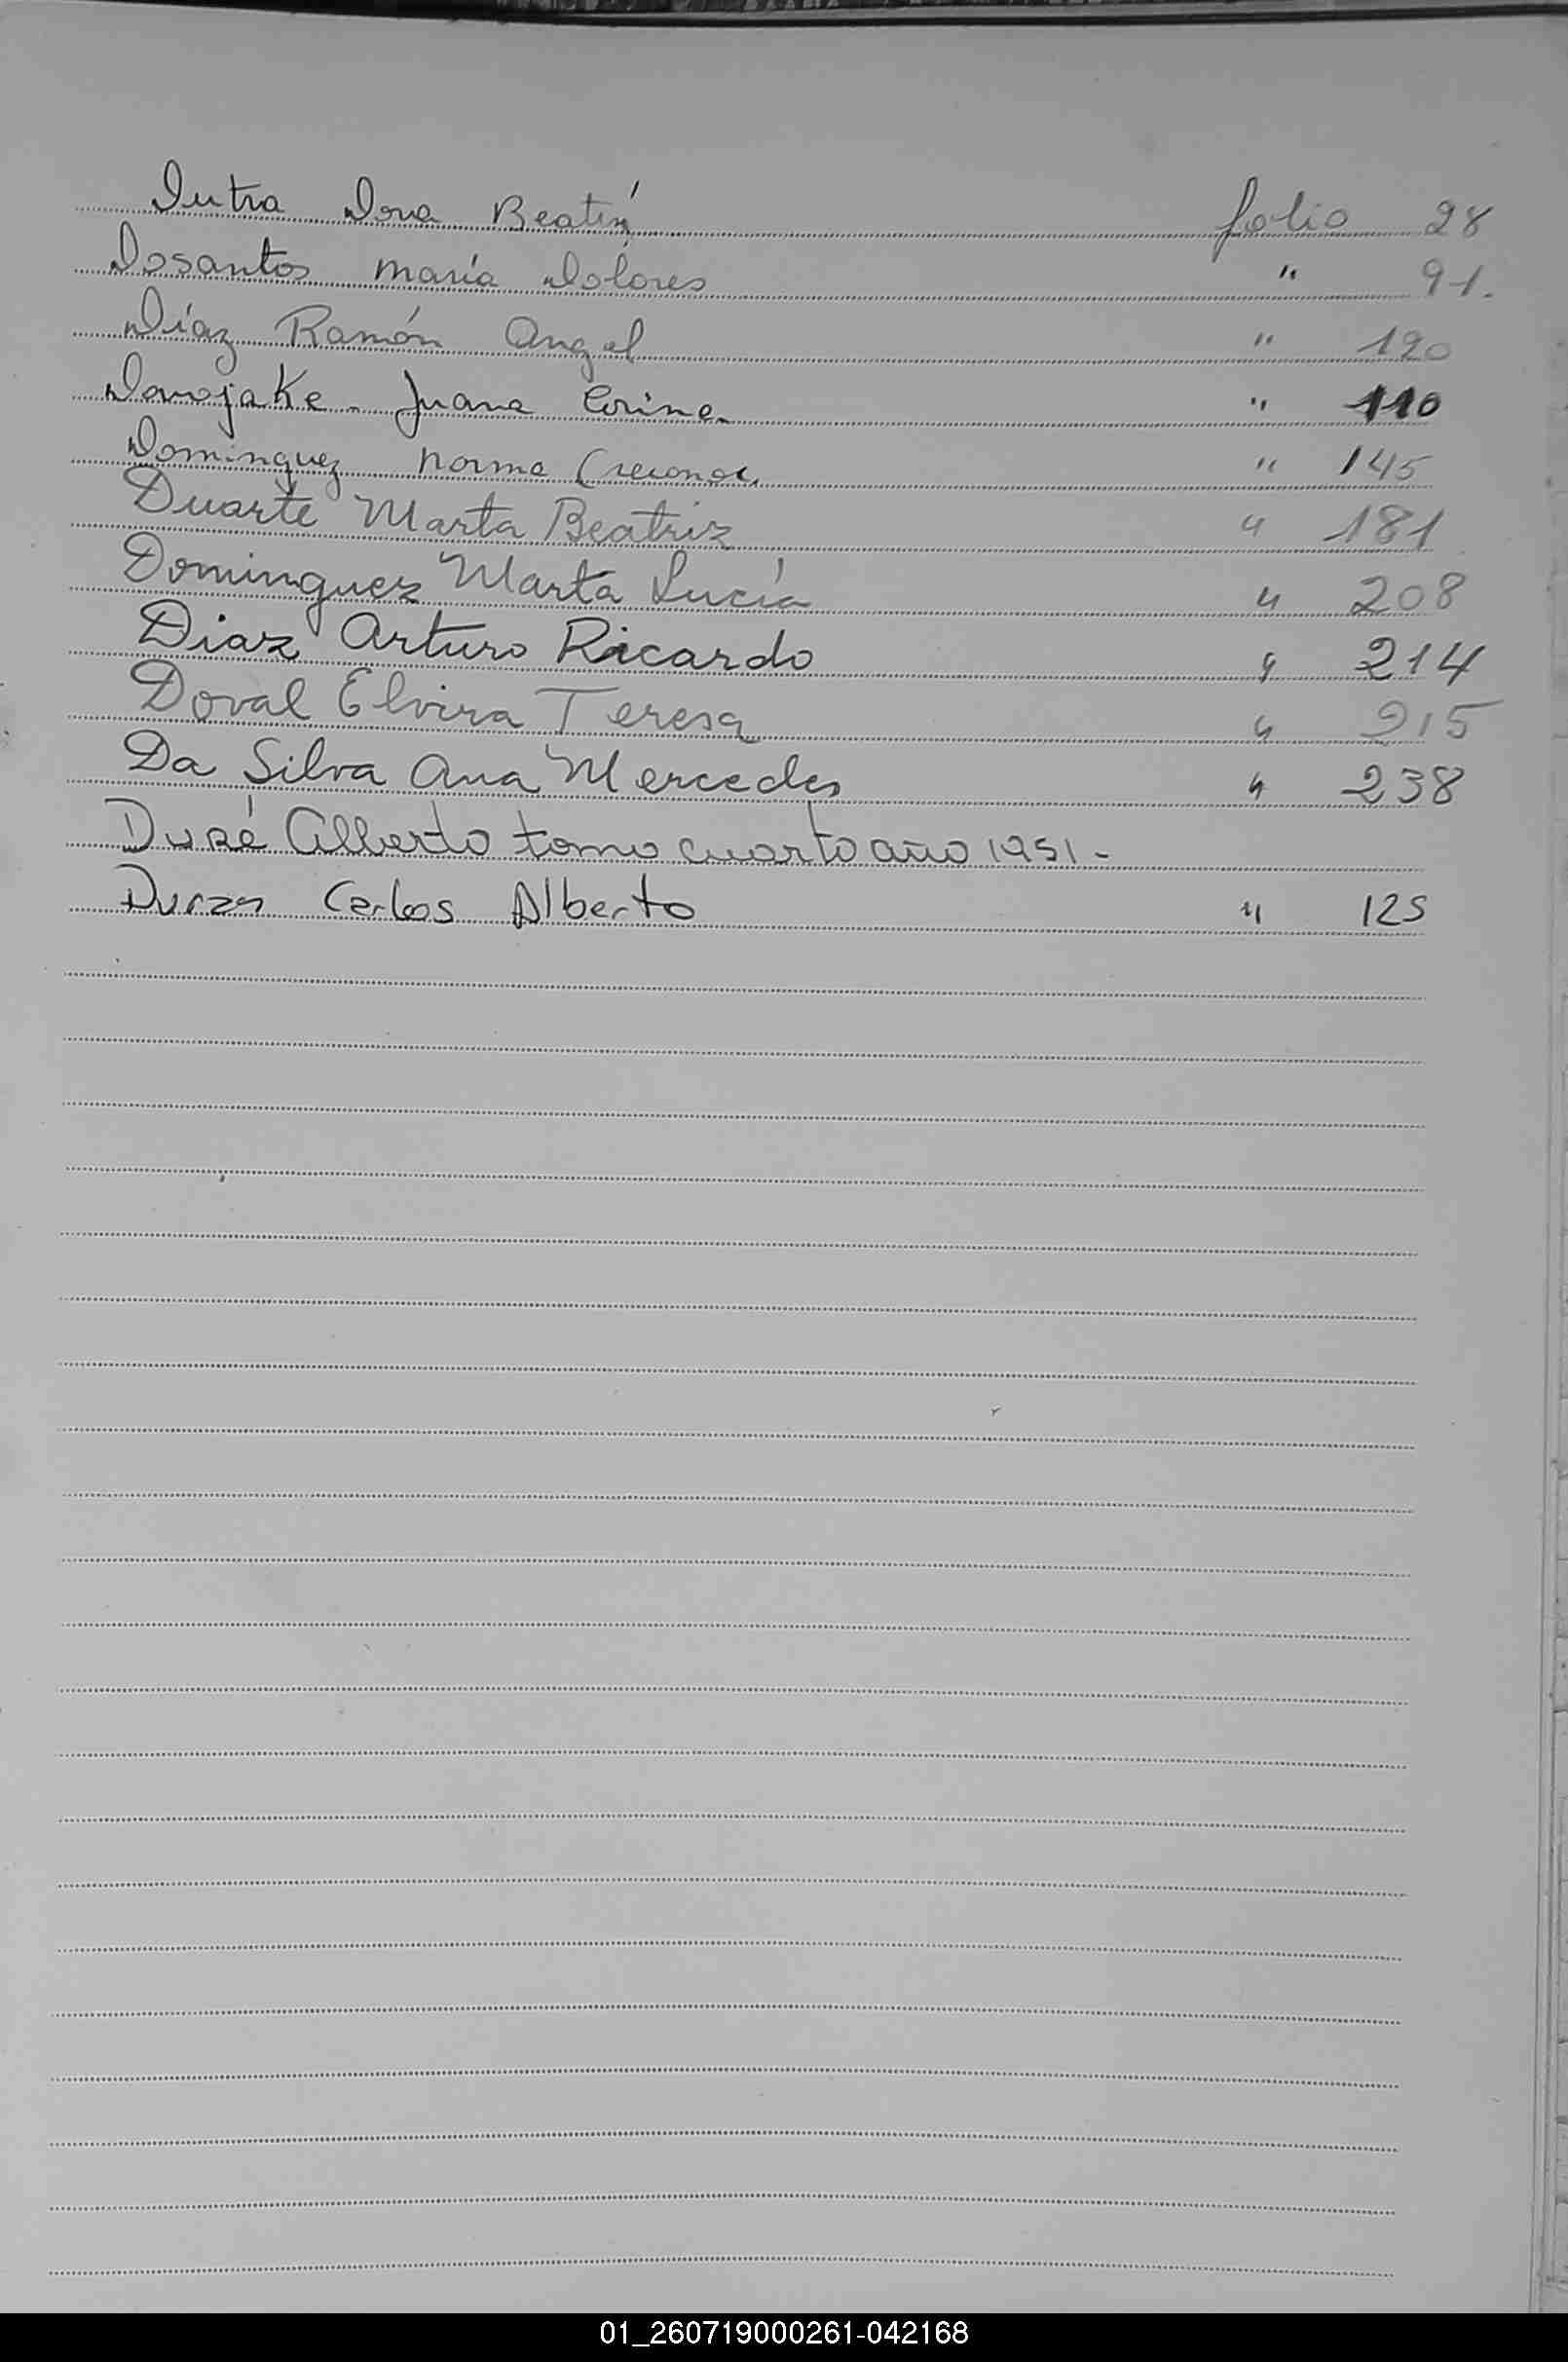 Dutra Dora Beatriz folio 28
Dosantos maría Dolores " 91.
Díaz Ramón Angel " 120
Juana Corina " 110
Dominguez norma " 145
Duarte Marta Beatriz " 181
Dominguez Marta Lucía " 208
Diaz Arturo Ricardo " 214
Doval Elvira Teresa " 215
Da Silva Ana Mercedes " 238
Duré Alberto tomo cuarto año 1951-
Duran Carlos Alberto " 125
01_260719000261-042168